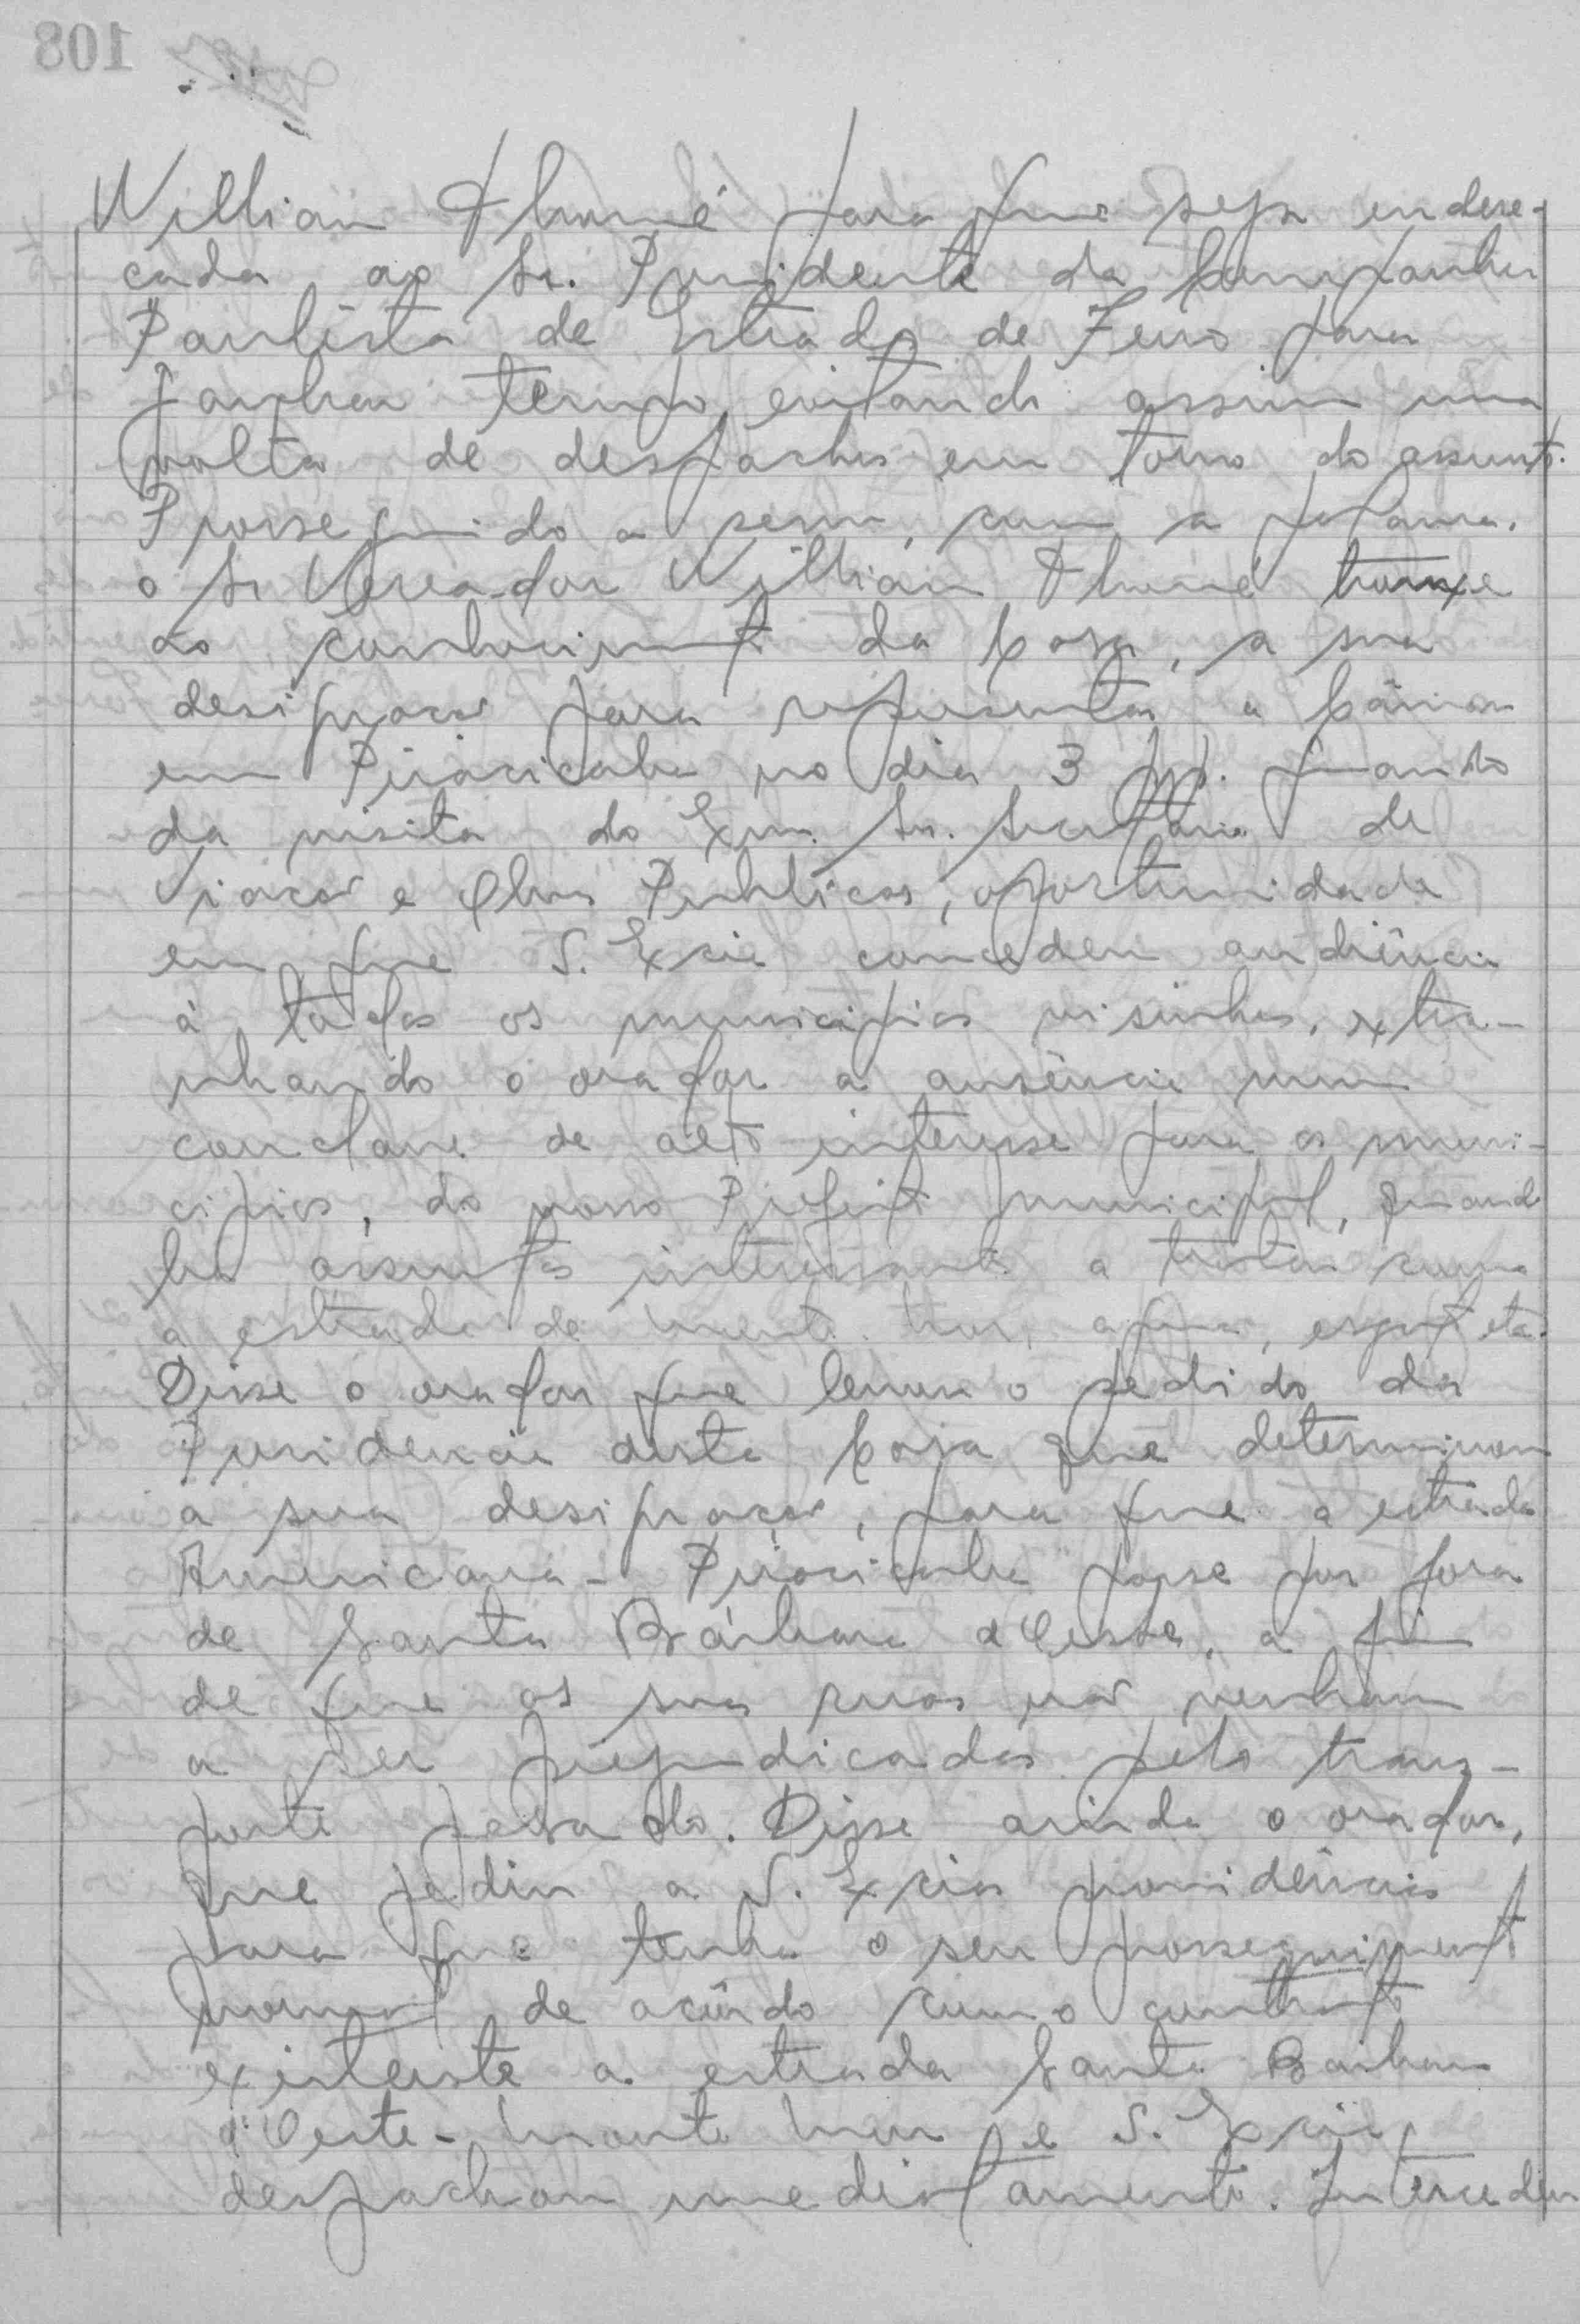 Willian Thomé para que seja endere-
çada ao Sr. Presidente da Companhia
Paulista de Estrada de Ferro para
ganhar tempo, evitando assim uma
volta de despachos em torno do assunto.
Prosseguido a sessão, com a palavra.
o Sr Vereador Willian Thomé trouxe
ao conhecimento da Casa, a sua
designação para representar a Câmara
em Piracicaba no dia 3 pp. quando
da visita do Exmo. Snr. Secretario de
Viação e Obras Publicas, oportunidade
em que S. Excia concedeu audiência
à todos os municipios visinhos, extra-
nhando o orador a ausência num
conclave de alto interesse para os muni-
cipios, do nosso Prefeito Municipal, quando
ha assuntos interessante a tratar como
a estrada de Monte Mor, agua, esgoto etc.
Disse o orador que levou o pedido da
Presidencia desta Casa que determinou
a sua designação, para que a estrada
Americana - Piracicaba passe por fora
de Santa Bárbara d'Oeste, a fim
de que as suas ruas não venham
a ser prejudicadas pelo trans-
porte pesado. Disse ainda o orador,
que pediu a S. Excia providências
para que tenha o seu prosseguimento
normal de acôrdo com o contrato
existente a estrada Santa Barbara
d'Oeste - Monte Mor e S. Excia,
despachou imediatamente. Intercedeu